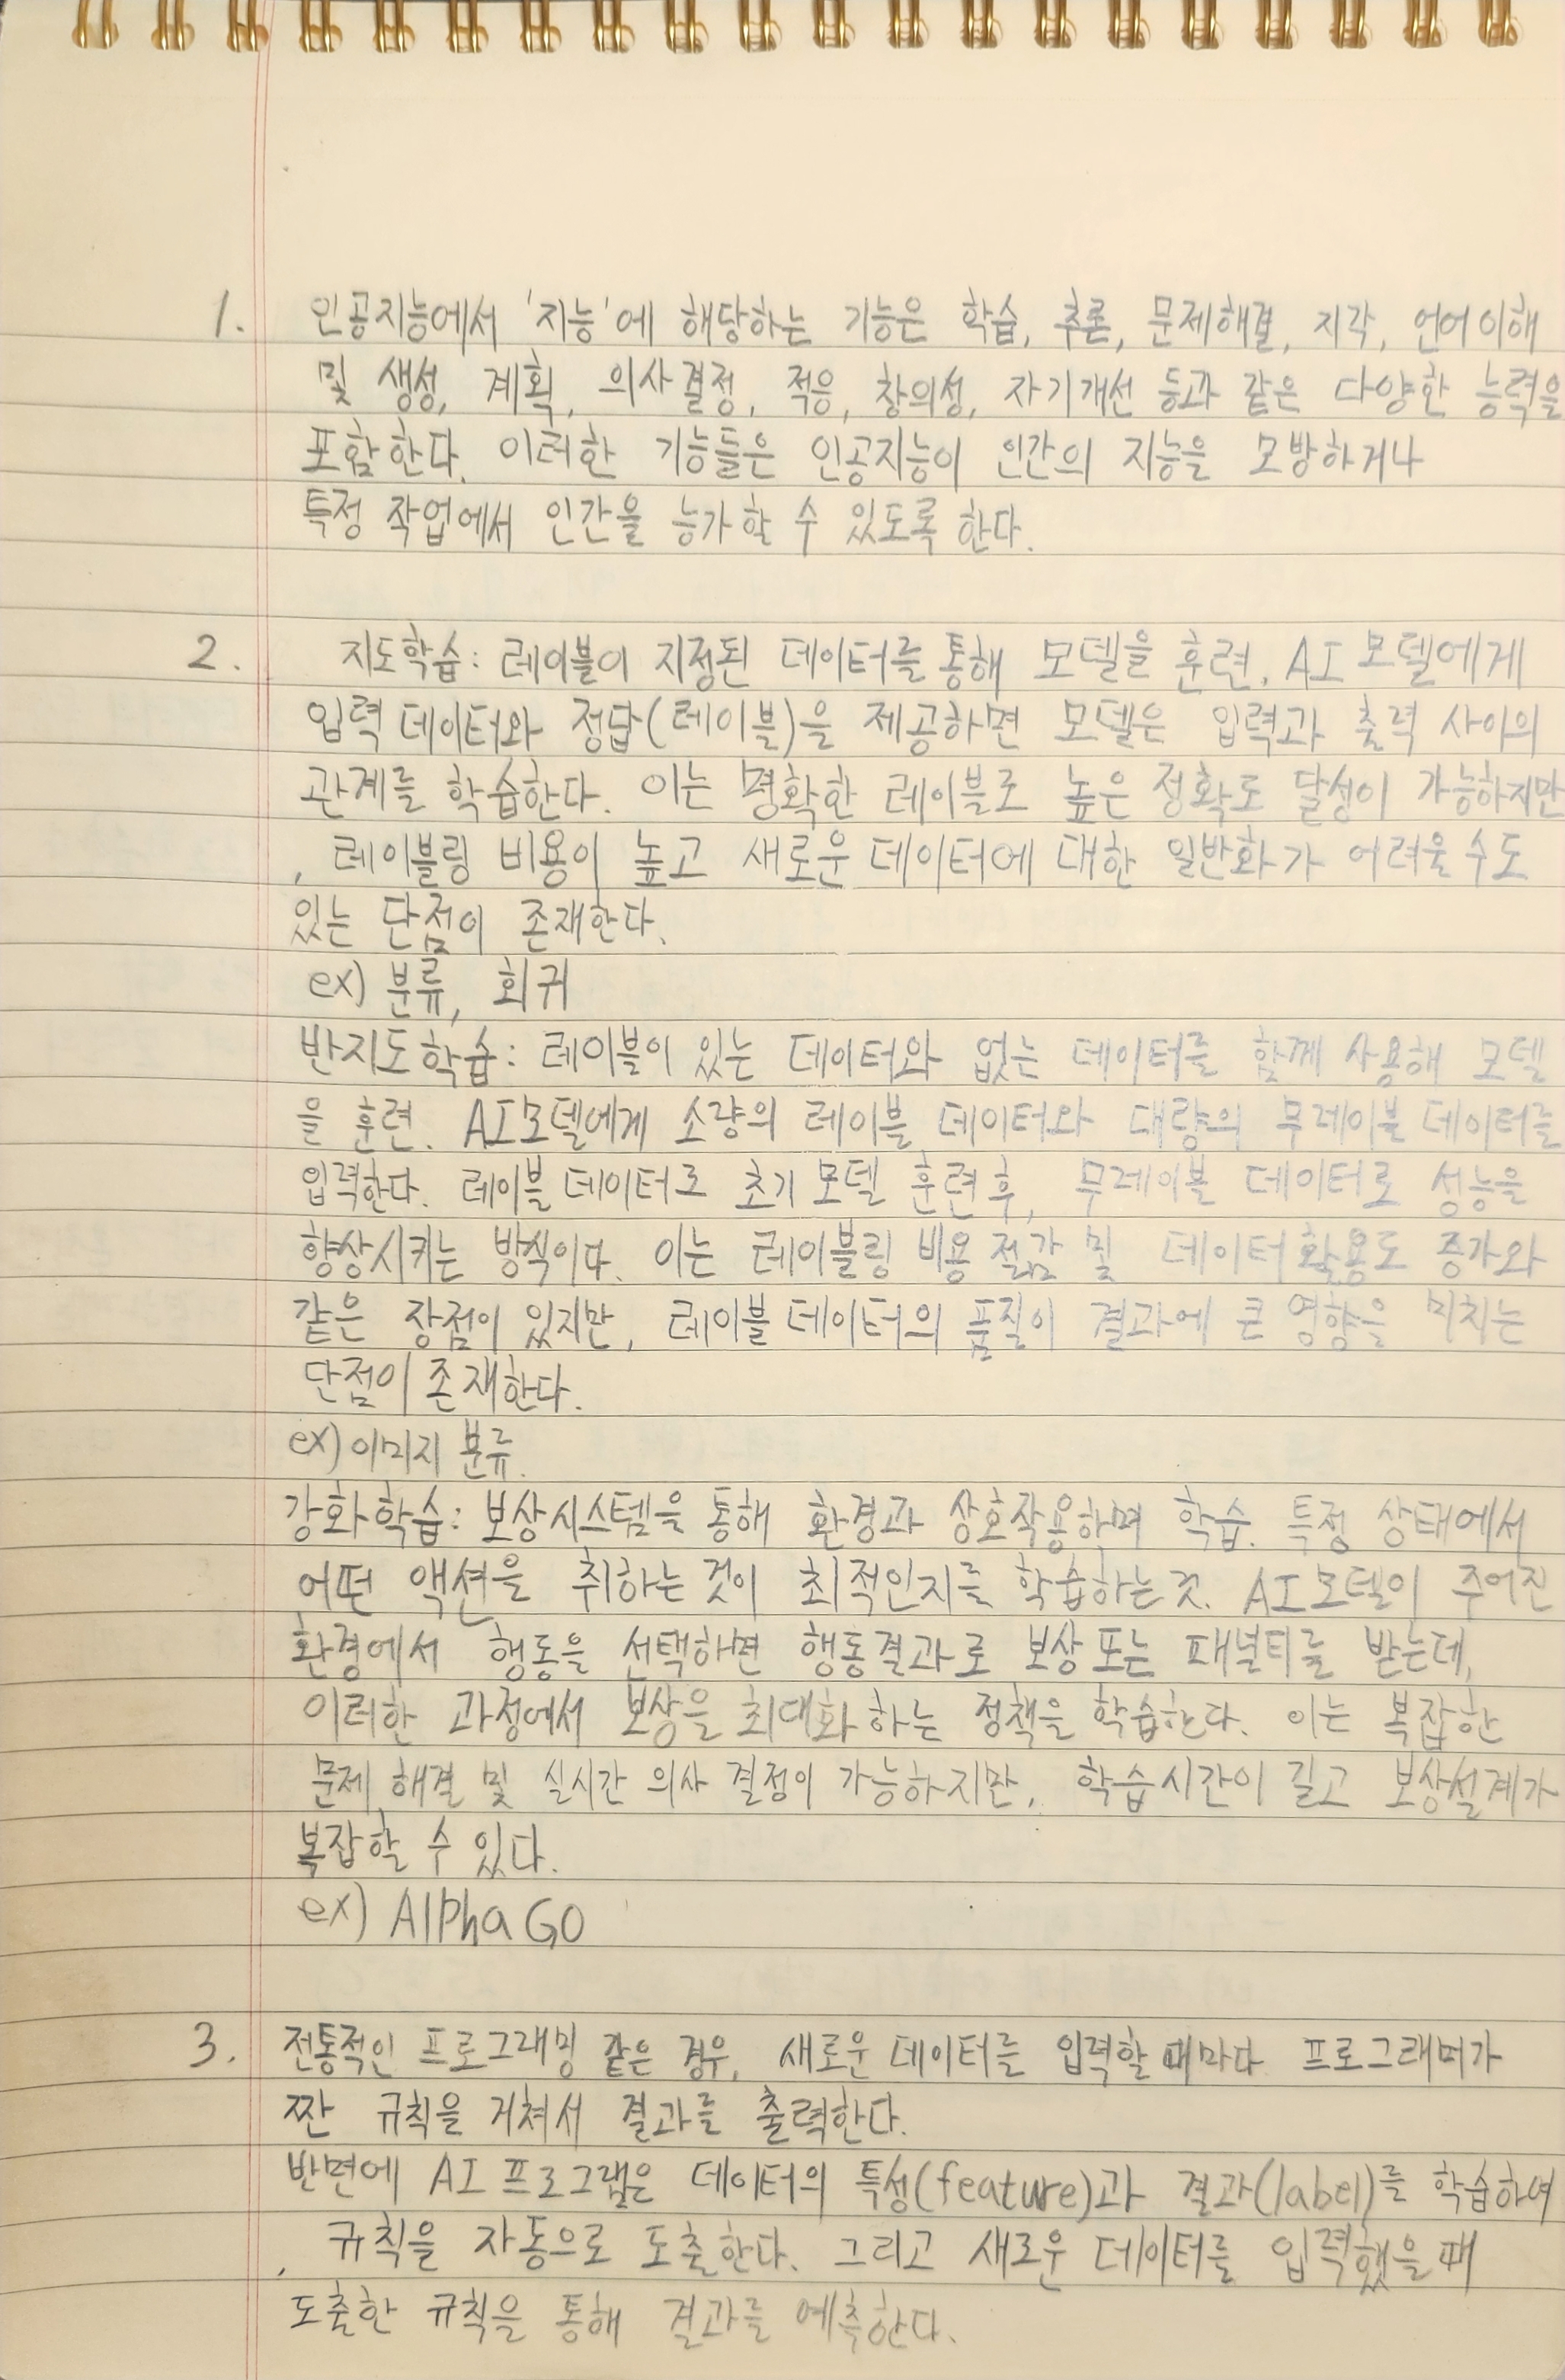 1. 인공지능에서 '지능'에 해당하는 기능은 학습, 추론, 문제해결, 지각, 언어이해
및 생성, 계획, 의사결정, 적응, 창의성, 자기개선 등과 같은 다양한 능력을
포함한다. 이러한 기능들은 인공지능이 인간의 지능을 모방하거나
특정 작업에서 인간을 능가할 수 있도록 한다.
2. 지도학습: 레이블이 지정된 데이터를 통해 모델을 훈련. AI 모델에게
입력 데이터와 정답(레이블)을 제공하면 모델은 입력과 출력 사이의
관계를 학습한다. 이는 명확한 레이블로 높은 정확도 달성이 가능하지만
, 레이블링 비용이 높고 새로운 데이터에 대한 일반화가 어려울 수도
있는 단점이 존재한다.
ex) 분류, 회귀
반지도학습: 레이블이 있는 데이터와 없는 데이터를 함께 사용해 모델
을 훈련. AI모델에게 소량의 레이블 데이터와 대량의 무레이블 데이터를
입력한다. 레이블 데이터로 초기 모델 훈련 후, 무레이블 데이터로 성능을
향상시키는 방식이다. 이는 레이블링 비용 절감 및 데이터 활용도 증가와
같은 장점이 있지만, 레이블 데이터의 품질이 결과에 큰 영향을 미치는
단점이 존재한다.
ex) 이미지 분류.
강화학습: 보상시스템을 통해 환경과 상호작용하며 학습. 특정 상태에서
어떤 액션을 취하는 것이 최적인지를 학습하는 것. AI모델이 주어진
환경에서 행동을 선택하면 행동결과로 보상 또는 패널티를 받는데,
이러한 과정에서 보상을 최대화 하는 정책을 학습한다. 이는 복잡한
문제 해결 및 실시간 의사 결정이 가능하지만, 학습시간이 길고 보상설계가
복잡할 수 있다.
ex) AlphaGO
3. 전통적인 프로그래밍 같은 경우, 새로운 데이터를 입력할 때마다 프로그래머가
짠 규칙을 거쳐서 결과를 출력한다.
반면에 AI 프로그램은 데이터의 특성(feature)과 결과(label)를 학습하여
, 규칙을 자동으로 도출한다. 그리고 새로운 데이터를 입력했을 때
도출한 규칙을 통해 결과를 예측한다.